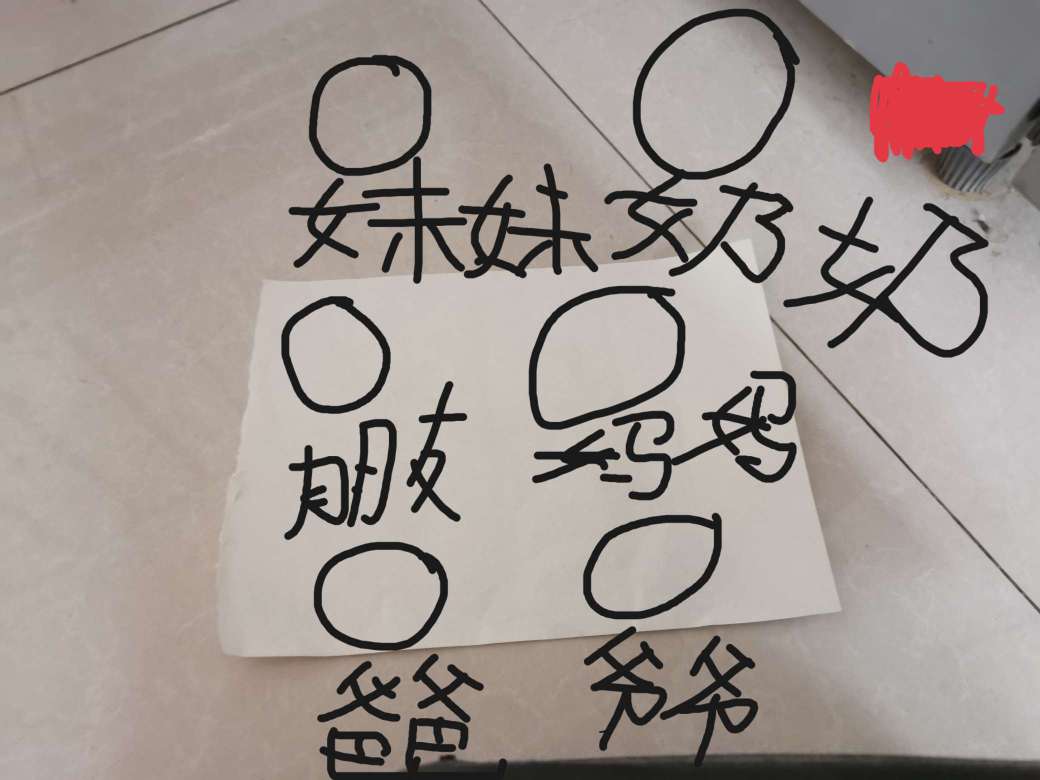 妹妹 奶奶
朋友 妈妈
爸爸 爷爷